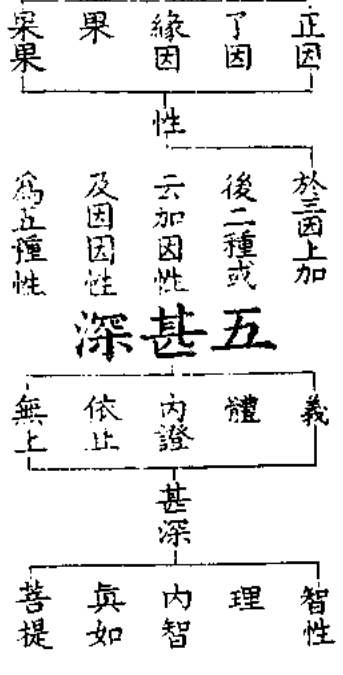 正因
了因
緣因
果
果果
性
於三因上加
後二種或
云加因性
及因因性
爲五種性
五甚深
義
體
內證
依止
無上
甚深
智性
理
內智
眞如
菩提